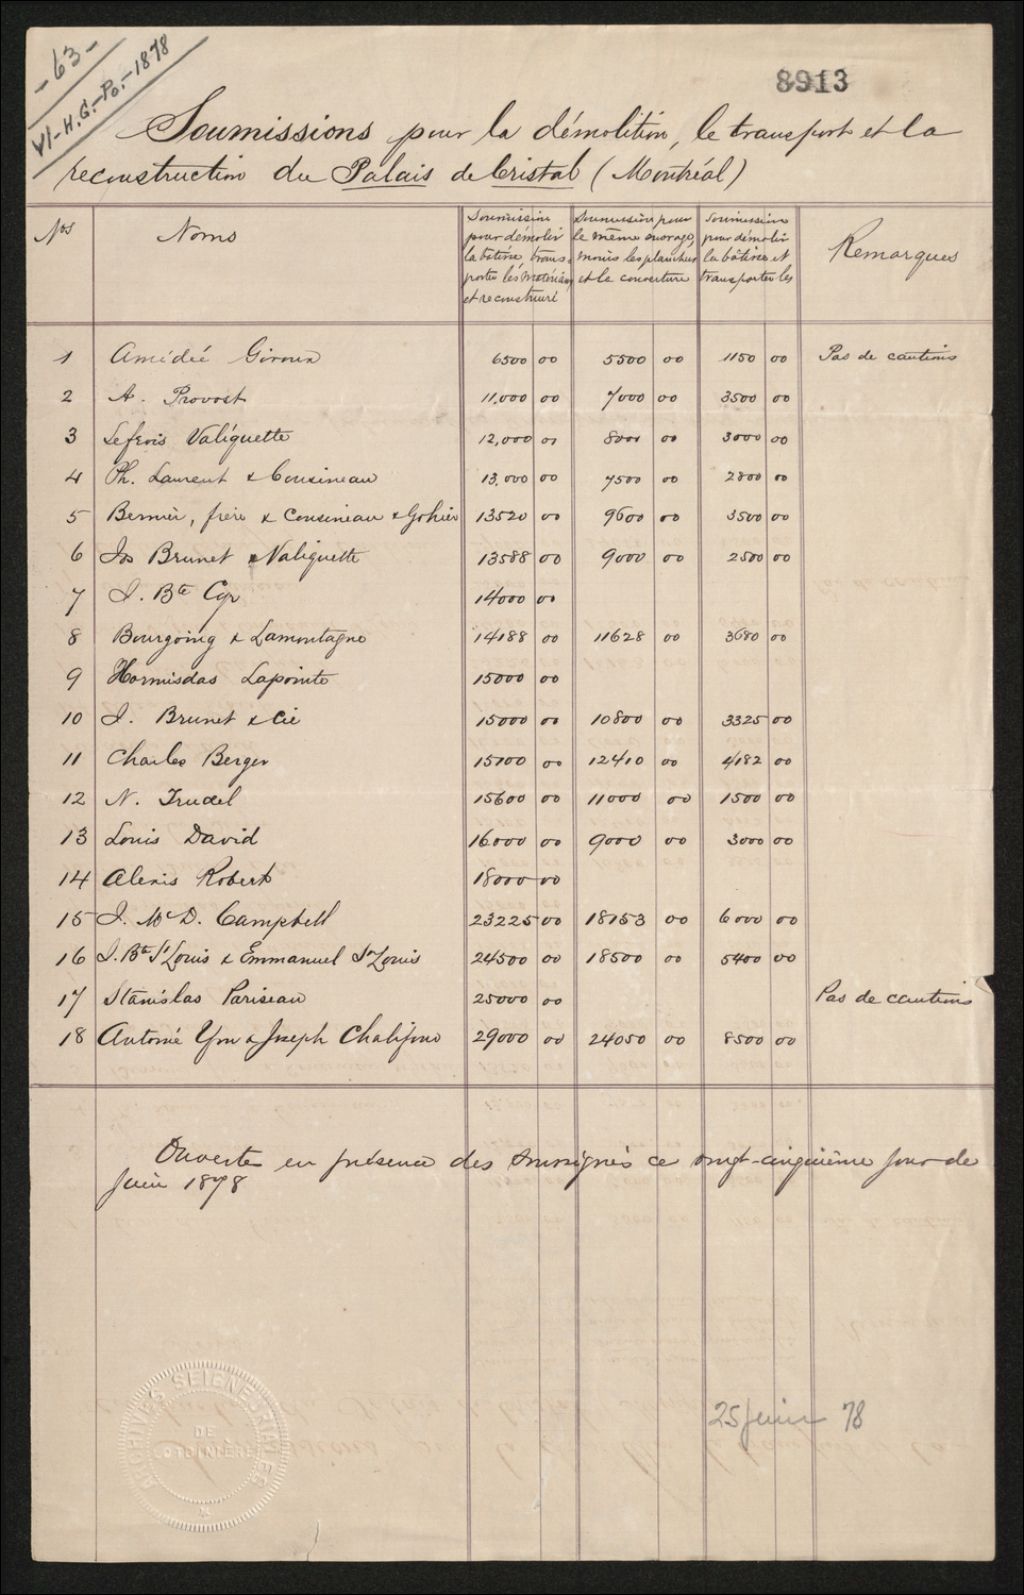 -63-
VI-H.G.-Po.-1878
8913
Soumissions pour la démolition, le transport et la
reconstruction du Palais de Cristal (Montréal)
Nos Noms Soumission pour démolir la bâtisse, transporter les matériaux et reconstruire Soumission pour le même ouvrage, moins les planchers et la couverture Soumission pour démolir la bâtisse et transporter les Remarques
1 Amédée Giroux 6500 00 5500 00 1150 00 Pas de cautions
2 A. Provost 11,000 00 7000 00 3500 00
3 Valiquette 12,000 00 8000 00 3000 00
4 Ph. Laurent & Cousineau 13,000 00 7500 00 2800 00
5 Bernier, frère & Cousineau & Gohier 13520 00 9600 00 3500 00
6 Jos Brunet & Valiquette 13588 00 9000 00 2500 00
7 J. Bte Cyr 14000 00
8 Bourgoing & Lamontagne 14188 00 11628 00 3680 00
9 Hormisdas Lapointe 15000 00
10 J. Brunet & Cie 15000 00 10800 00 3325 00
11 Charles Berger 15100 00 12410 00 4182 00
12 N. Trudel 15600 00 11000 00 1500 00
13 Louis David 16000 00 9000 00 3000 00
14 Alexis Robert 18000 00
15 J. McD. Campbell 23225 00 18153 00 6000 00
16 J. Bte St Louis & Emmanuel St Louis 24500 00 18500 00 5400 00
17 Stanislas Pariseau 25000 00 Pas de cautions
18 Antoine Yon & Joseph Chalifoux 29000 00 24050 00 8500 00
Ouvertes en présence des soussignés ce vingt-cinquième jour de
Juin 1878
25 Juin 78
ARCHIVES SEIGNEURIALES
DE
LOTBINIÈRE